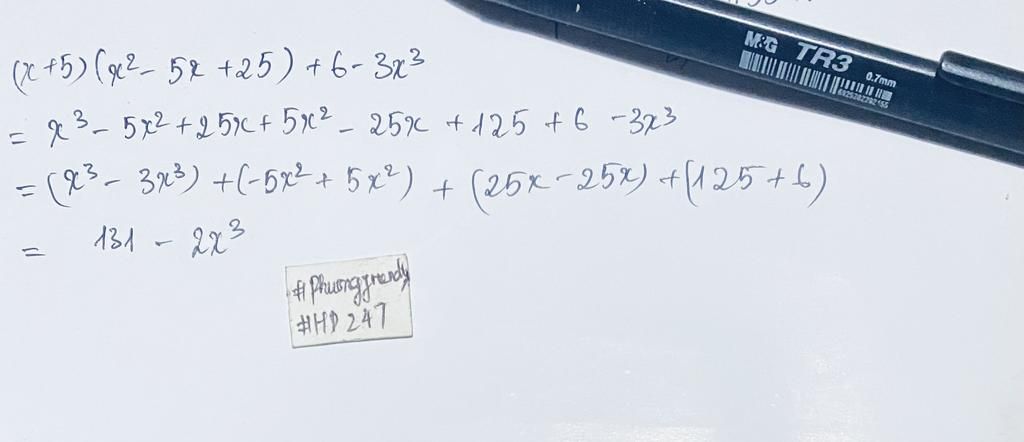 (x+5)(x² - 5x + 25) + 6 - 3x³
= x³ - 5x² + 25x + 5x² - 25x + 125 + 6 - 3x³
= (x³ - 3x³) + (-5x² + 5x²) + (25x - 25x) + (125 + 6)
= 131 - 2x³
#HD 247
M&G TR3 0.7mm